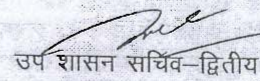 उप शासन सचिव–द्वितीय